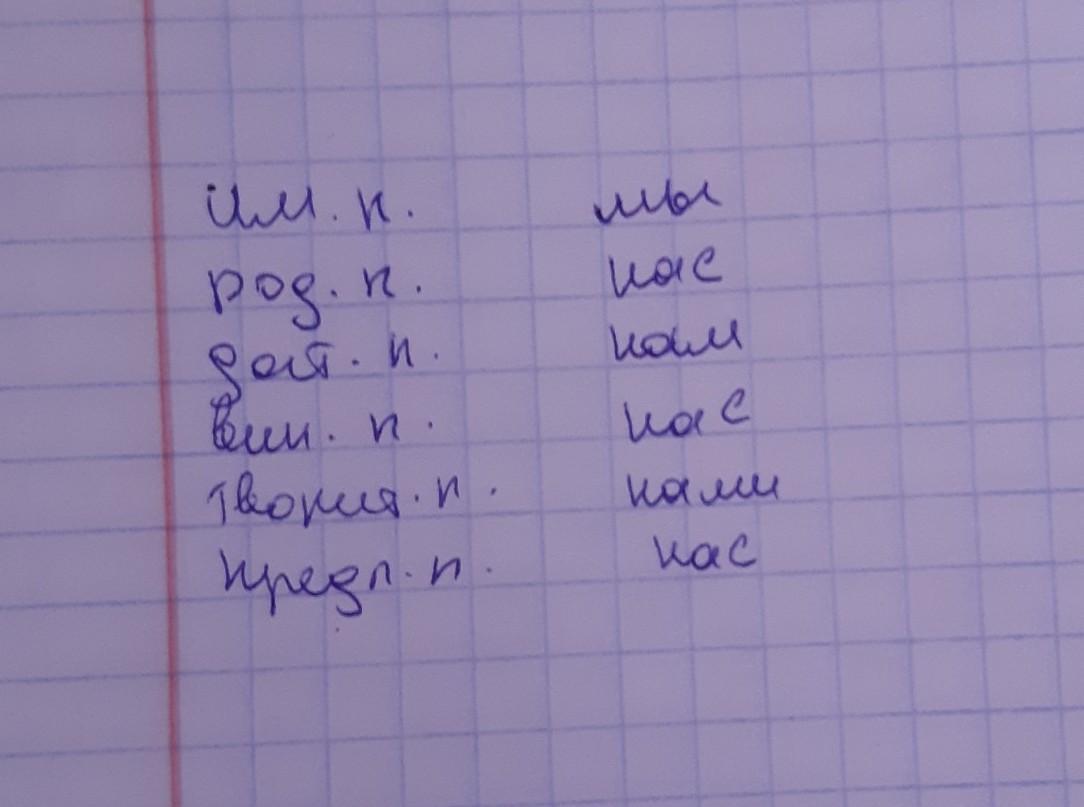 им. п. мы
род. п. нас
дат. п. нам
вин. п. нас
творит. п. нами
предл. п. нас